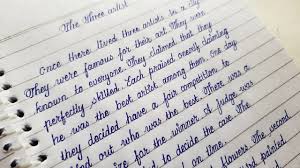 The Three artist
Once there lived three artists in a city
They were famous for their art. They were
known to everyone. They claimed that they
perfectly skilled. Each praised oneself claiming
he was the best artist among them. One day
they decided have a fair competition to
find out who was the best. There was a
for the winner. A judge was
to decide the case. The
on flowers. The second